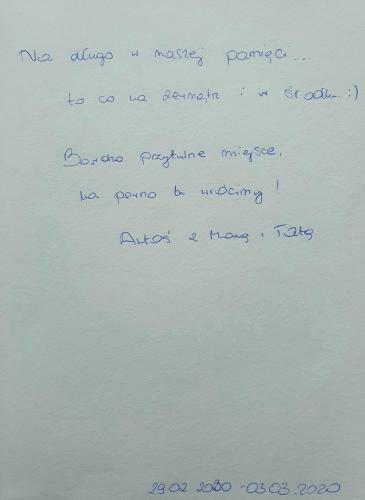 Na długo w naszej pamięci...
to co na zewnątrz i w środku :)
Bardzo przytulne miejsce,
na pewno tu wrócimy!
Antoś z Mamą i Tatą
29.02.2020 - 03.03.2020